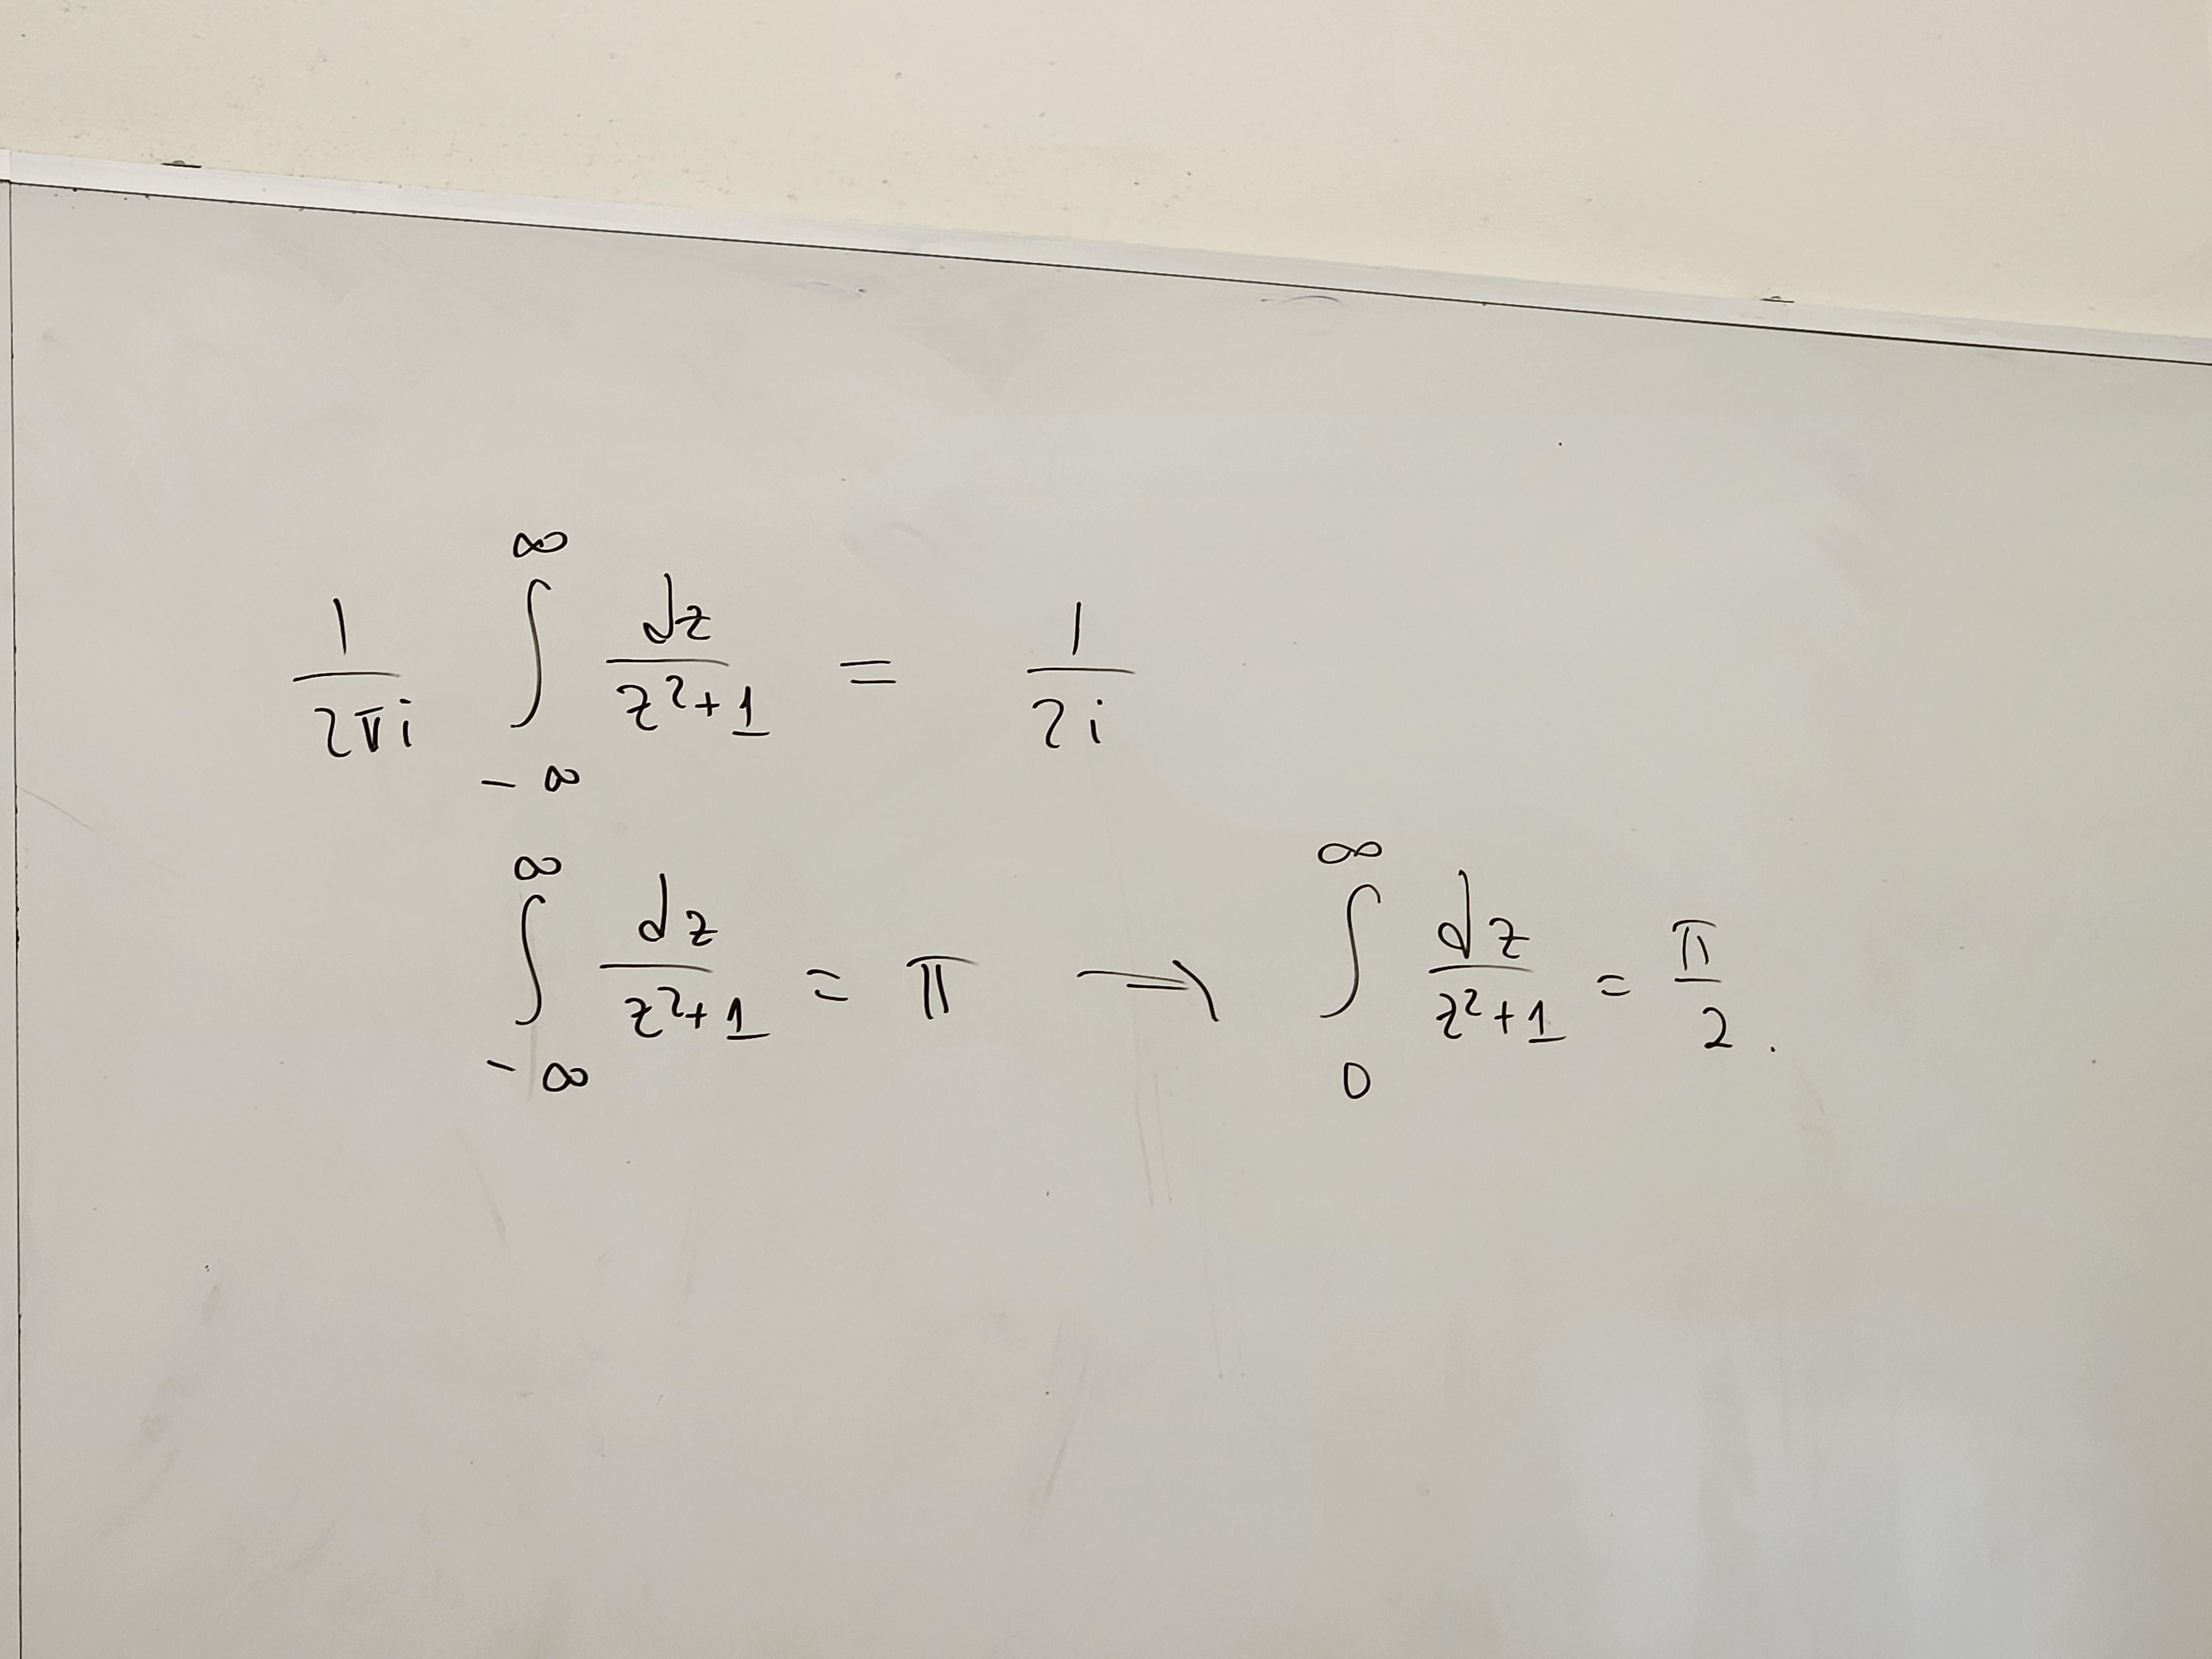 \frac{1}{2\pi i} \int_{-\infty}^{\infty} \frac{dz}{z^2+1} = \frac{1}{2i}
\int_{-\infty}^{\infty} \frac{dz}{z^2+1} = \pi \Rightarrow \int_{0}^{\infty} \frac{dz}{z^2+1} = \frac{\pi}{2}.